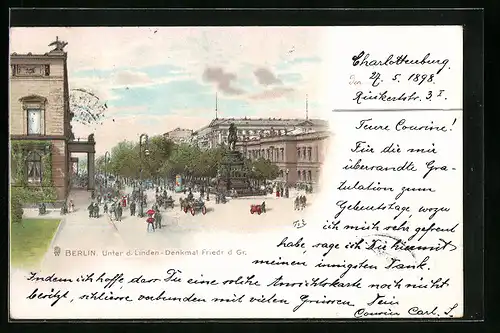 Charlottenburg.
den 24. 5. 1898.
3. I.
Teure Cousine!
Für die mir
übersandte Gra-
tulation zum
Geburtstag, wozu
ich mich sehr gefreut
habe, sage ich Dir hiermit
meinen innigsten Dank.
BERLIN. Unter d. Linden - Denkmal Friedr. d. Gr.
Indem ich hoffe, dass Du eine solche Ansichtskarte noch nicht
besitzt, schliesse verbunden mit vielen Grüssen Dein
Cousin Carl. S.